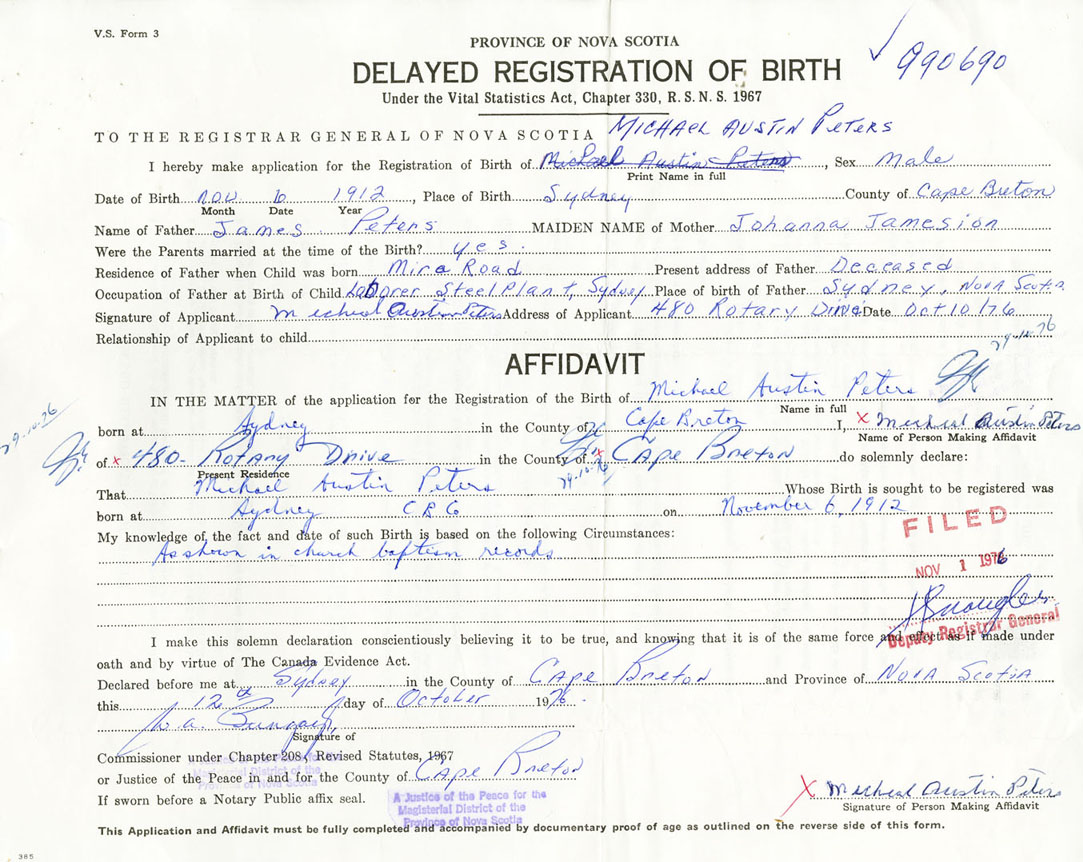 V.S. Form 3
PROVINCE OF NOVA SCOTIA
990690
DELAYED REGISTRATION OF BIRTH
Under the Vital Statistics Act, Chapter 330, R.S.N.S. 1967
TO THE REGISTRAR GENERAL OF NOVA SCOTIA MICHAEL AUSTIN PETERS
I hereby make application for the Registration of Birth of Michael Austin Peters, Sex Male
Print Name in full
Date of Birth Nov. 6 1912, Place of Birth Sydney County of Cape Breton
Month Date Year
Name of Father James Peters MAIDEN NAME of Mother Johanna Jamesion
Were the Parents married at the time of the Birth? yes.
Residence of Father when Child was born Mira Road Present address of Father Deceased
Occupation of Father at Birth of Child Laborer Steel Plant, Sydney Place of birth of Father Sydney, Nova Scotia
Signature of Applicant Micheal Austin Peters Address of Applicant 480 Rotary Drive Date Oct 10/76
Relationship of Applicant to child
29-10-76
AFFIDAVIT
IN THE MATTER of the application for the Registration of the Birth of Michael Austin Peters
Name in full
29-10-76
born at Sydney in the County of Cape Breton I, x Micheal Austin Peters
Name of Person Making Affidavit
of x 480 - Rotary Drive in the County of x Cape Breton do solemnly declare:
Present Residence
29-10-76
That Michael Austin Peters Whose Birth is sought to be registered was
born at Sydney C.B.Co on November 6, 1912
FILED
My knowledge of the fact and date of such Birth is based on the following Circumstances:
As shown in church baptism records
NOV 1 1976
Deputy Registrar General
I make this solemn declaration conscientiously believing it to be true, and knowing that it is of the same force and effect as if made under
oath and by virtue of The Canada Evidence Act.
Declared before me at Sydney in the County of Cape Breton and Province of Nova Scotia
this 12th day of October 1976.
W.A.
Signature of
Commissioner under Chapter 208, Revised Statutes, 1967
or Justice of the Peace in and for the County of Cape Breton
Magisterial District of the
Province of Nova Scotia
If sworn before a Notary Public affix seal.
A Justice of the Peace for the
Magisterial District of the
Province of Nova Scotia
x Micheal Austin Peters
Signature of Person Making Affidavit
This Application and Affidavit must be fully completed and accompanied by documentary proof of age as outlined on the reverse side of this form.
385